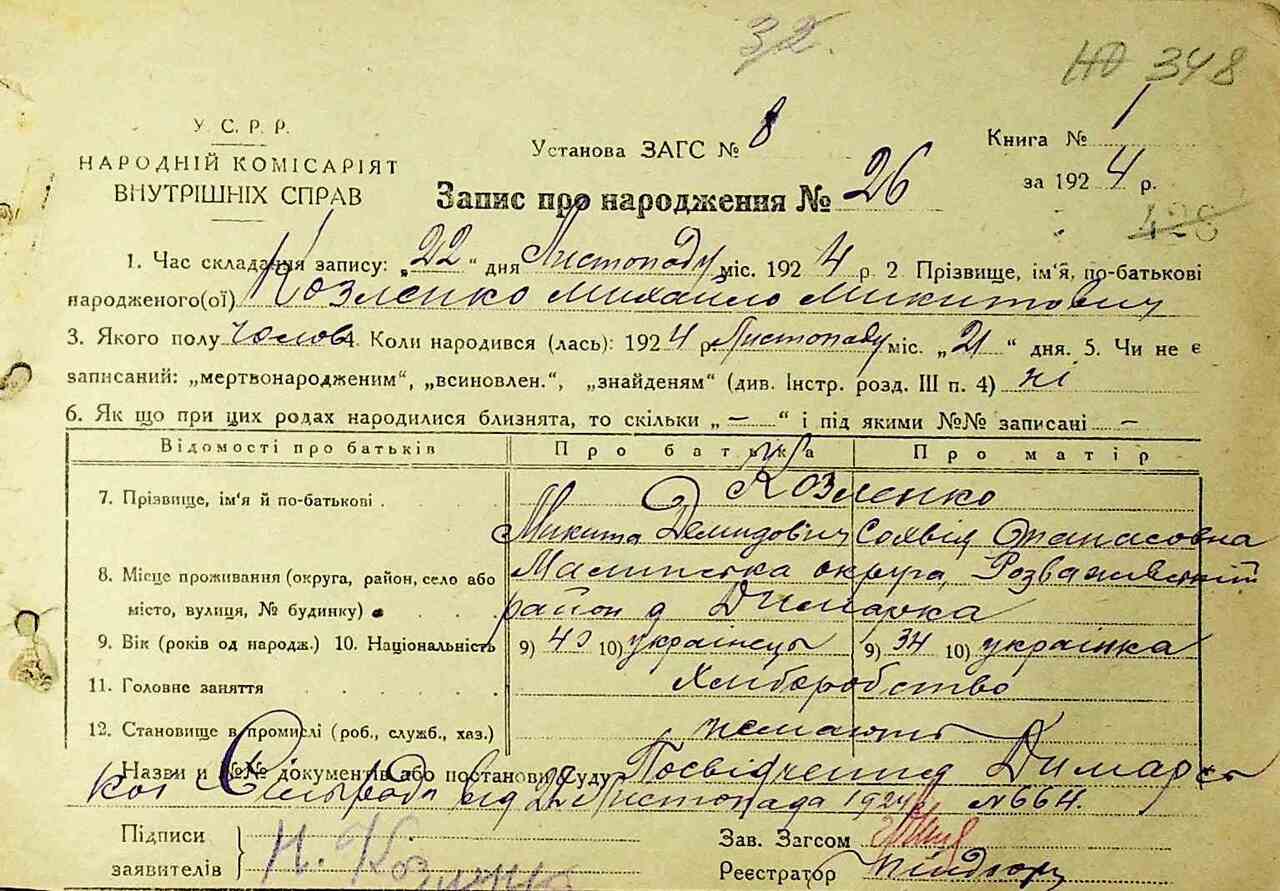 32.
НО 348
У. С. Р. Р.
НАРОДНІЙ КОМІСАРІЯТ
ВНУТРІШНІХ СПРАВ
Установа ЗАГС № 8
Книга № 1
за 1924 р.
Запис про народження № 26
428
1. Час складання запису: „22" дня Листопаду міс. 1924 р. 2. Прізвище, ім'я, по-батькові
народженого(ої) Козленко Михайло Микитович
3. Якого полу чолов 4. Коли народився (лась): 1924 р. Листопаду міс. „21" дня. 5. Чи не є
записаний: „мертвонародженим", „всиновлен.", „знайденям" (див. Інстр. розд. III п. 4) ні
6. Як що при цих родах народилися близнята, то скільки „—" і під якими №№ записані —
Відомості про батьків Про батька Про матір
7. Прізвище, ім'я й по-батькові Козленко
Микита Демидович Софвія Опанасовна
8. Місце проживання (округа, район, село або Малинська округа, Розважівський
місто, вулиця, № будинку) район д Димарка
9. Вік (років од народж.) 10. Національність 9) 10) українець 9) 34 10) українка
11. Головне заняття Хліборобство
12. Становище в промислі (роб., служб., хаз.) немають
Назви и №№ документів або постанови Суду Посвідчення Димарсь
кої Сільради від 22 Листопада 1924 р. №664.
Підписи
заявителів
Н. Козленко
Зав. Загсом
Реєстратор